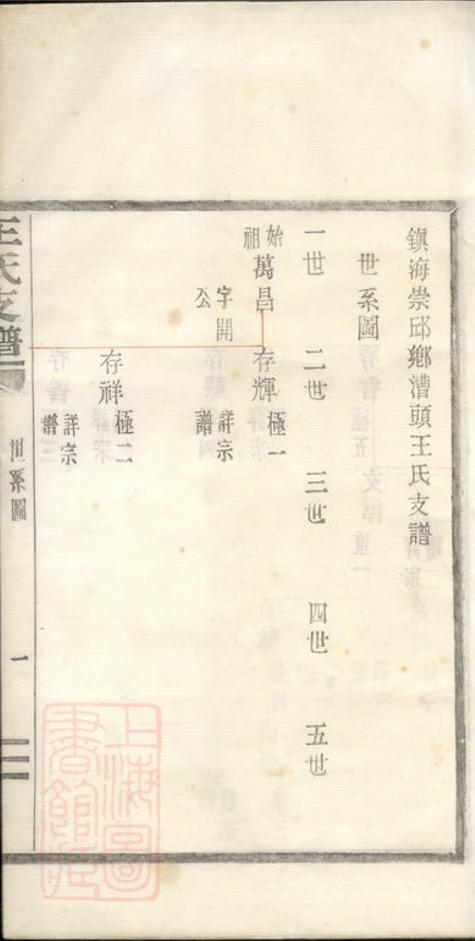 鎮海崇邱鄉漕頭王氏支譜
世系圖
一世 二世 三世 四世 五世
始祖 萬昌 存輝 極一 詳宗譜
字開公
存祥 極二 詳宗譜
王氏支譜 世系圖 一
上海圖書館藏